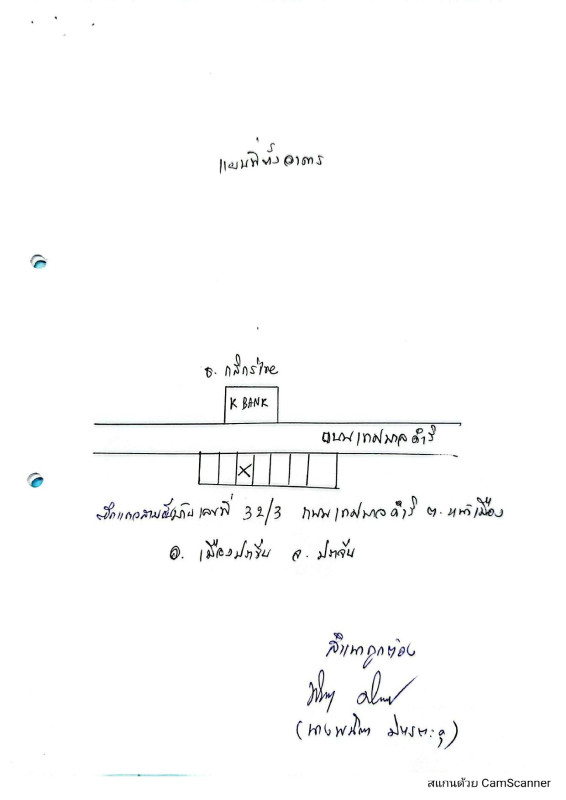 แผนที่ตั้งอาคาร
ธ. กสิกรไทย
K BANK
ถนนเทศบาลดำริ
ตึกแถวสามชั้น เลขที่ 32/3 ถนนเทศบาลดำริ ต. หน้าเมือง
อ. เมืองปราจีน จ. ปราจีน
สำเนาถูกต้อง
สแกนด้วย CamScanner